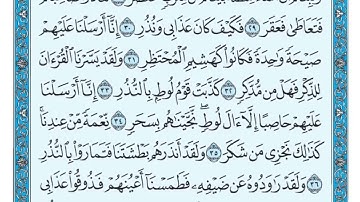 فَتَعَاطَىٰ فَعَقَرَ ٢٩ فَكَيْفَ كَانَ عَذَابِي وَنُذُرِ ٣٠ إِنَّآ أَرْسَلْنَا عَلَيْهِمْ
صَيْحَةً وَٰحِدَةً فَكَانُوا۟ كَهَشِيمِ ٱلْمُحْتَظِرِ ٣١ وَلَقَدْ يَسَّرْنَا ٱلْقُرْءَانَ
لِلذِّكْرِ فَهَلْ مِن مُّدَّكِرٍ ٣٢ كَذَّبَتْ قَوْمُ لُوطٍۭ بِٱلنُّذُرِ ٣٣ إِنَّآ أَرْسَلْنَا
عَلَيْهِمْ حَاصِبًا إِلَّآ ءَالَ لُوطٍ ۖ نَّجَّيْنَٰهُم بِسَحَرٍ ٣٤ نِّعْمَةً مِّنْ عِندِنَا ۚ
كَذَٰلِكَ نَجْزِي مَن شَكَرَ ٣٥ وَلَقَدْ أَنذَرَهُم بَطْشَتَنَا فَتَمَارَوْا۟ بِٱلنُّذُرِ
٣٦ وَلَقَدْ رَٰوَدُوهُ عَن ضَيْفِهِۦ فَطَمَسْنَآ أَعْيُنَهُمْ فَذُوقُوا۟ عَذَابِي